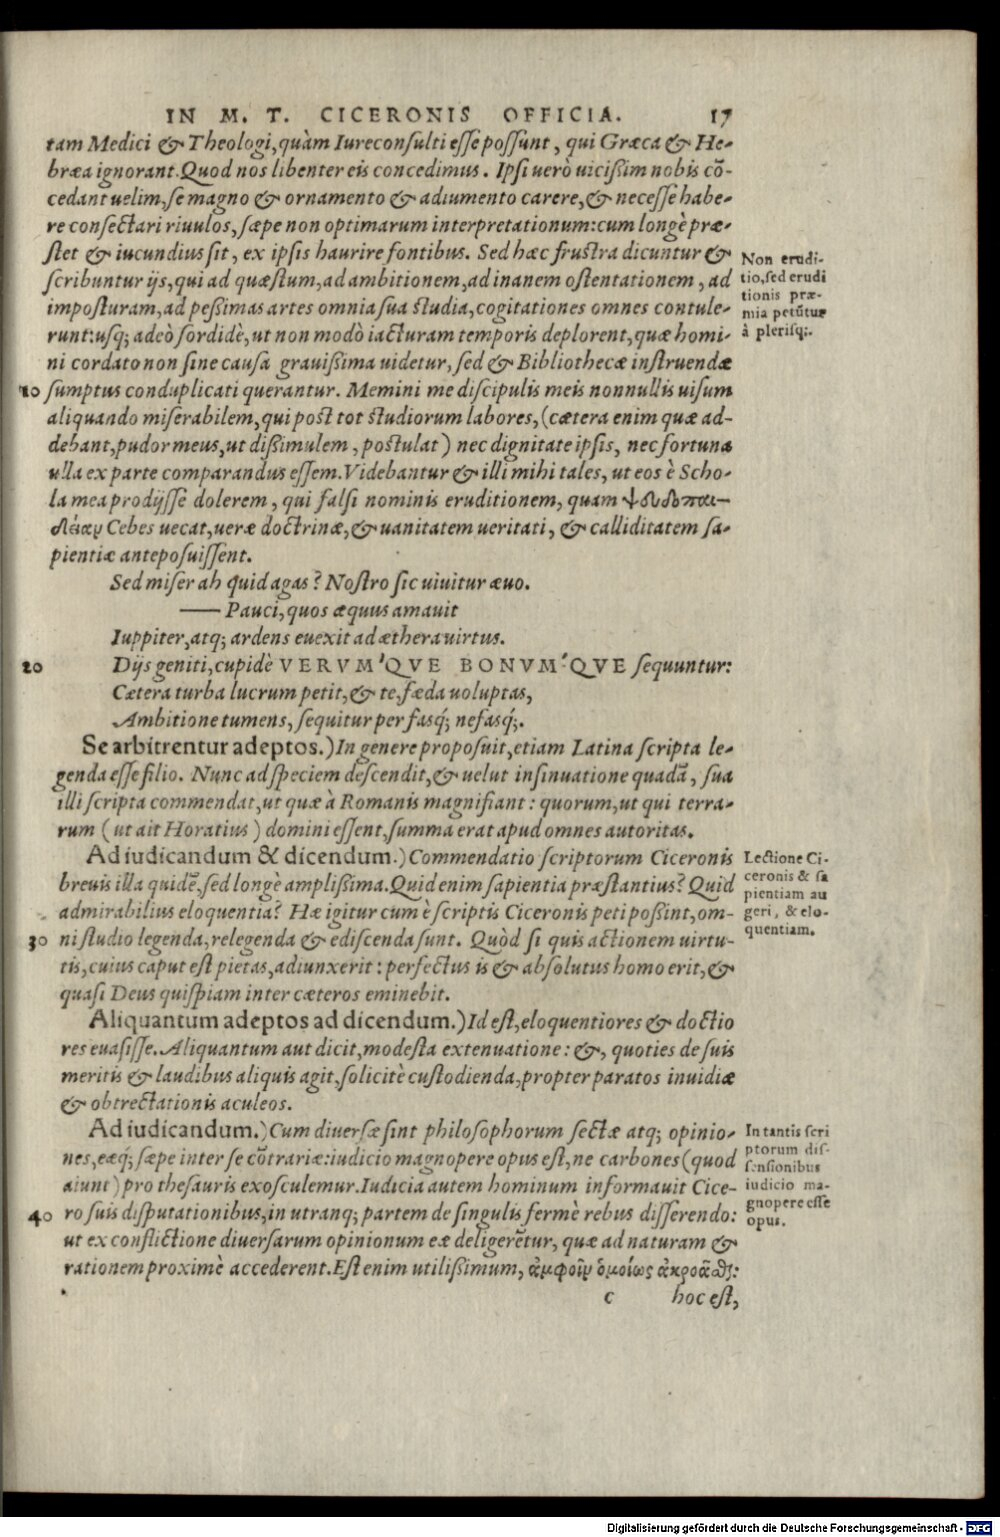 IN M. T. CICERONIS OFFICIA. 17
tam Medici & Theologi, quàm Iureconsulti esse possunt, qui Græca & He-
bræa ignorant. Quod nos libenter eis concedimus. Ipsi uerò uicißim nobis cõ-
cedant uelim, se magno & ornamento & adiumento carere, & necesse habe-
re consectari riuulos, sæpe non optimarum interpretationum: cum longè præ-
stet & iucundius sit, ex ipsis haurire fontibus. Sed hæc frustra dicuntur &
scribuntur ijs, qui ad quæstum, ad ambitionem, ad inanem ostentationem, ad
imposturam, ad peßimas artes omnia sua studia, cogitationes omnes contule-
runt: usq; adeò sordidè, ut non modò iacturam temporis deplorent, quæ homi-
ni cordato non sine causa grauißima uidetur, sed & Bibliothecæ instruendæ
10 sumptus conduplicati querantur. Memini me discipulis meis nonnullis uisum
aliquando miserabilem, qui post tot studiorum labores, (cætera enim quæ ad-
debant, pudor meus, ut dißimulem, postulat) nec dignitate ipsis, nec fortuna
ulla ex parte comparandus essem. Videbantur & illi mihi tales, ut eos è Scho-
la mea prodijsse dolerem, qui falsi nominis eruditionem, quam ψευδοπαι-
δείαν Cebes uocat, ueræ doctrinæ, & uanitatem ueritati, & calliditatem sa-
pientiæ anteposuissent.
Sed miser ah quid agas? Nostro sic uiuitur æuo.
—— Pauci, quos æquus amauit
Iuppiter, atq; ardens euexit ad æthera uirtus.
20 Dijs geniti, cupidè VERVM'QVE BONVM'QVE sequuntur:
Cætera turba lucrum petit, & te, fæda uoluptas,
Ambitione tumens, sequitur per fasq́; nefasq́;.
Se arbitrentur adeptos.) In genere proposuit, etiam Latina scripta le-
genda esse filio. Nunc ad speciem descendit, & uelut insinuatione quadã, sua
illi scripta commendat, ut quæ à Romanis magnifiant: quorum, ut qui terra-
rum (ut ait Horatius) domini essent, summa erat apud omnes autoritas.
Ad iudicandum & dicendum.) Commendatio scriptorum Ciceronis
breuis illa quidẽ, sed longè amplißima. Quid enim sapientia præstantius? Quid
admirabilius eloquentia? Hæ igitur cum è scriptis Ciceronis peti poßint, om-
30 ni studio legenda, relegenda & ediscenda sunt. Quòd si quis actionem uirtu-
tis, cuius caput est pietas, adiunxerit: perfectus is & absolutus homo erit, &
quasi Deus quispiam inter cæteros eminebit.
Aliquantum adeptos ad dicendum.) Id est, eloquentiores & doctio
res euasisse. Aliquantum aut dicit, modesta extenuatione: &, quoties de suis
meritis & laudibus aliquis agit, solicitè custodienda, propter paratos inuidiæ
& obtrectationis aculeos.
Ad iudicandum.) Cum diuersæ sint philosophorum sectæ atq; opinio-
nes, eæq; sæpe inter se cõtrariæ: iudicio magnopere opus est, ne carbones (quod
aiunt) pro thesauris exosculemur. Iudicia autem hominum informauit Cice-
40 ro suis disputationibus, in utranq; partem de singulis fermè rebus disserendo:
ut ex conflictione diuersarum opinionum eæ deligerẽtur, quæ ad naturam &
rationem proximè accederent. Est enim utilißimum, ἀμφοῖν ὁμοίως ἀκροᾶσθαι:
c hoc est,
Non erudi-
tio, sed erudi
tionis præ-
mia petũtur
à plerisq;.
Lectione Ci-
ceronis & sa
pientiam au
geri, & elo-
quentiam.
In tantis scri
ptorum dis-
sensionibus
iudicio ma-
gnopere esse
opus.
Digitalisierung gefördert durch die Deutsche Forschungsgemeinschaft - DFG